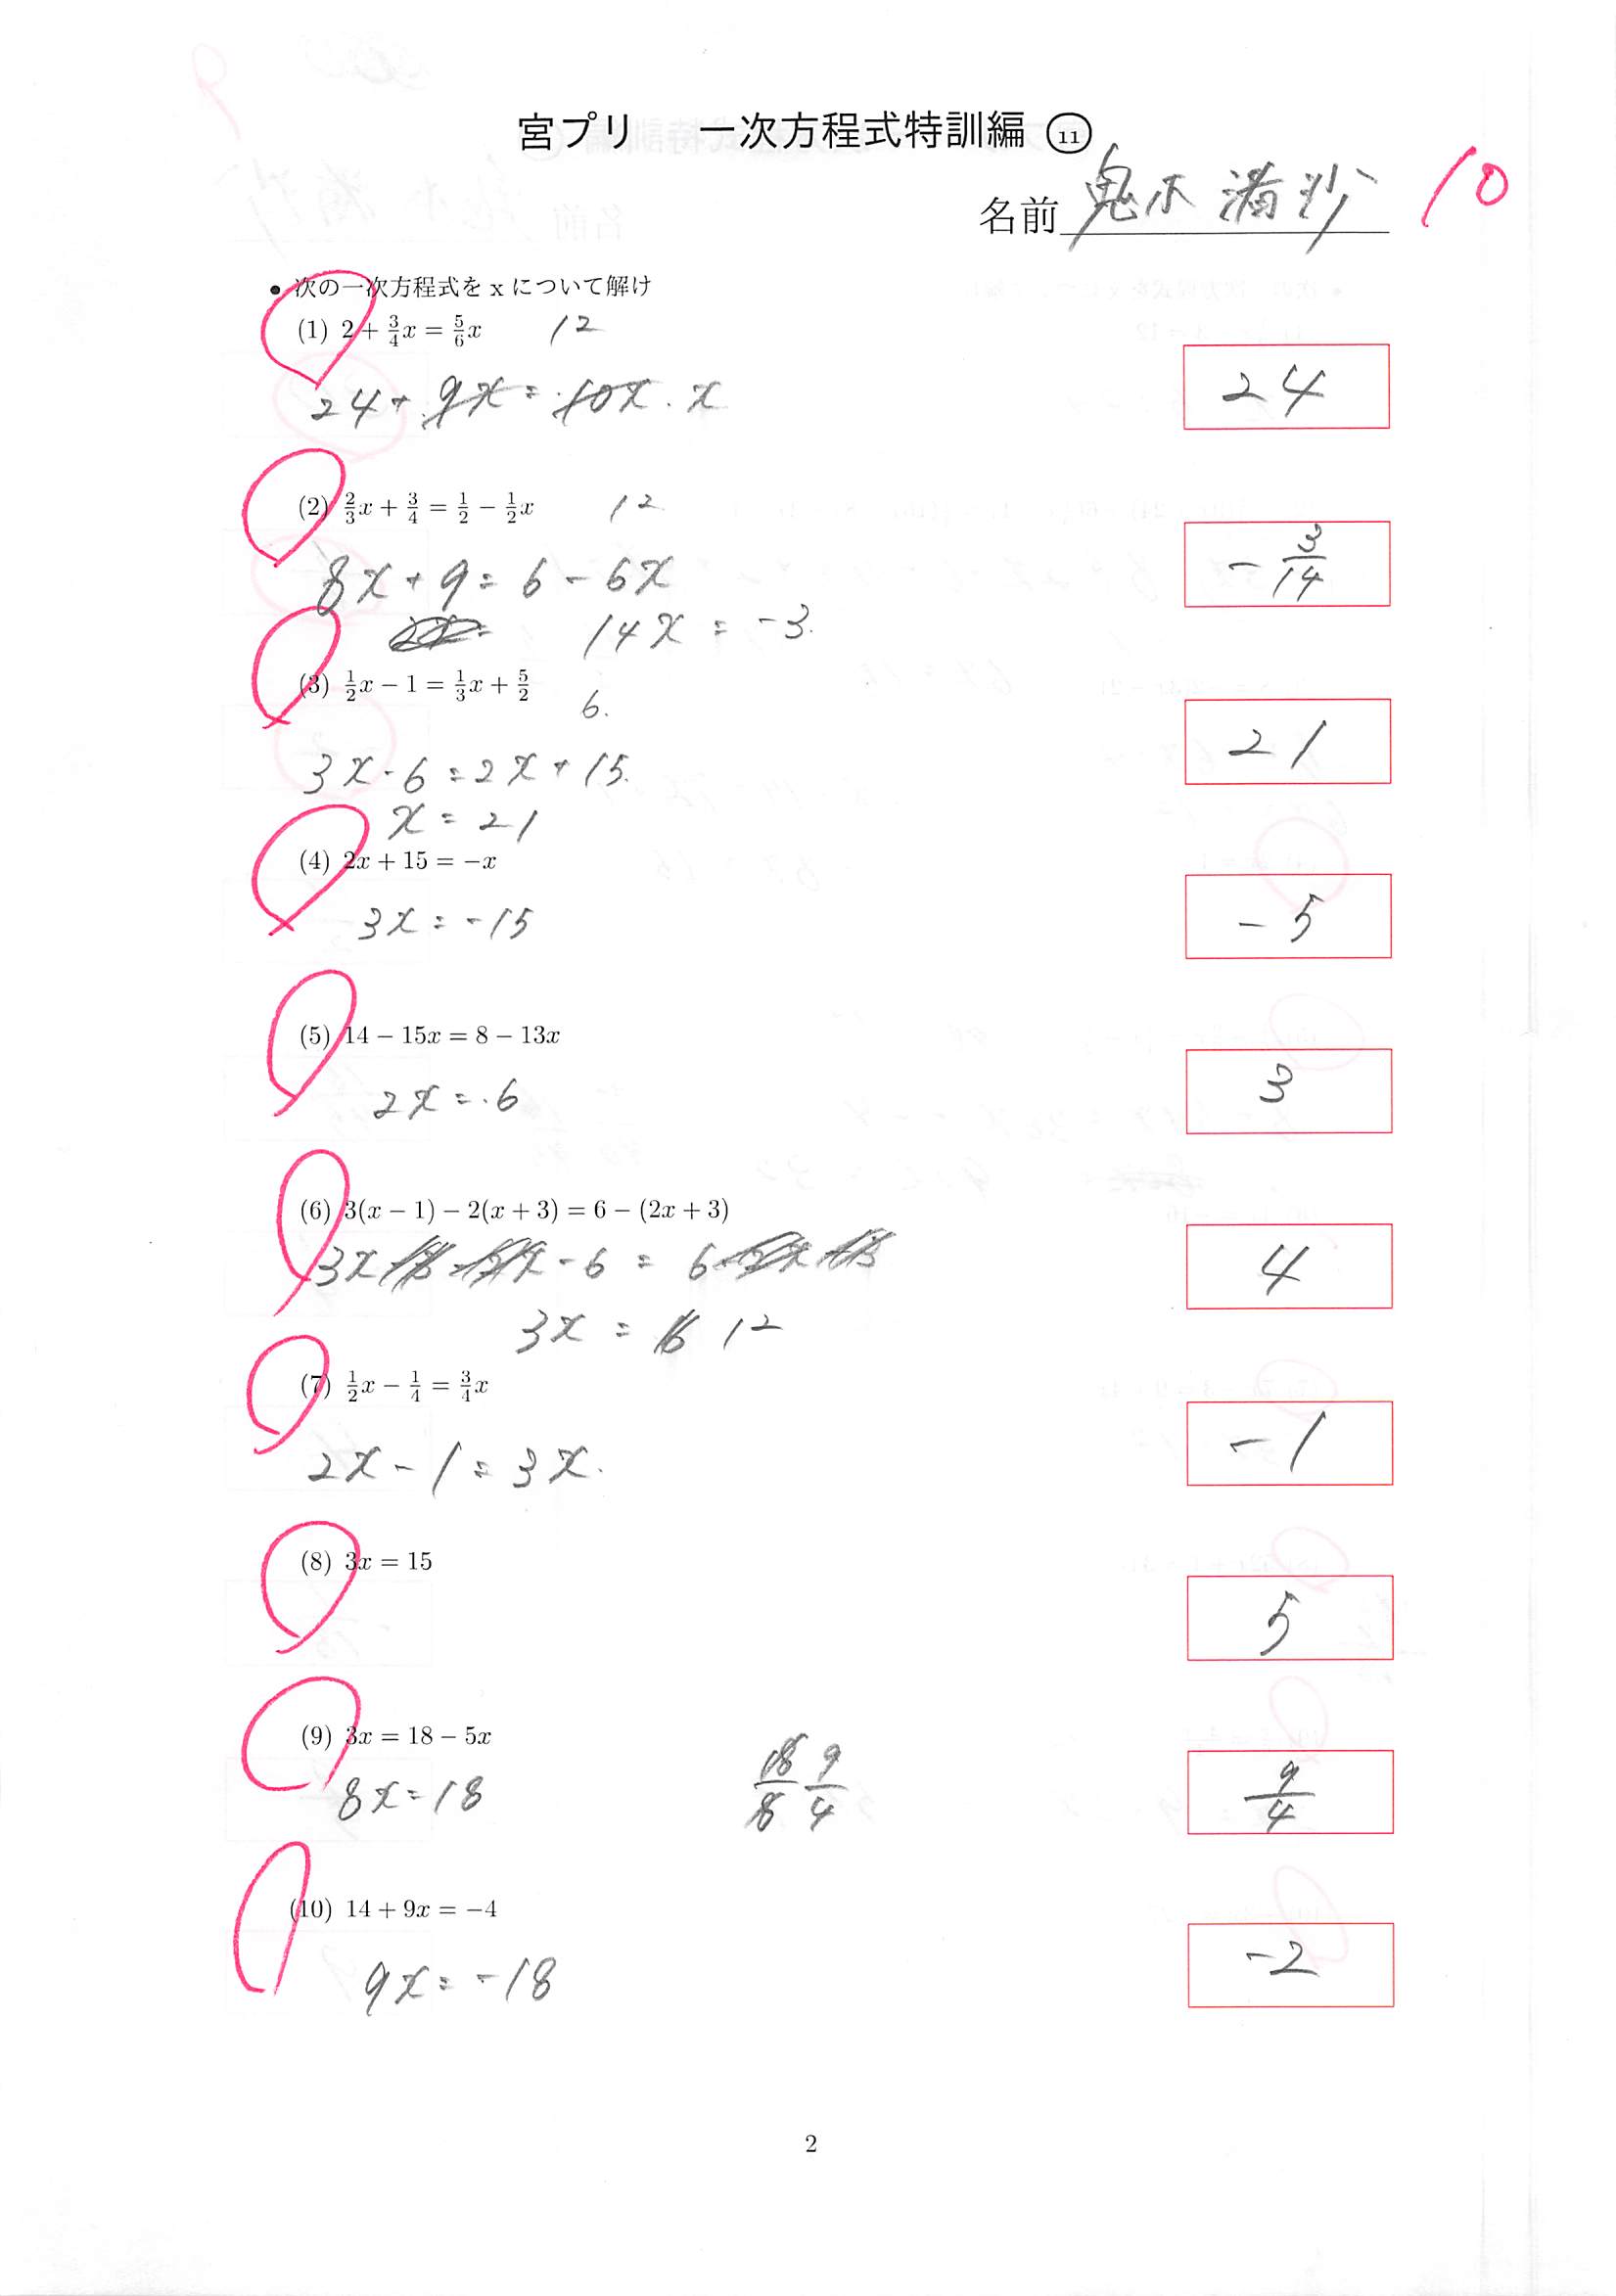 宮プリ 一次方程式特訓編 ⑪
名前 鬼木 満沙 10
• 次の一次方程式を x について解け
(1) 2 + 3/4 x = 5/6 x 12
24 + 9x = 10x x
24
(2) 2/3 x + 3/4 = 1/2 − 1/2 x 12
8x + 9 = 6 − 6x
14x = −3
−3/14
(3) 1/2 x − 1 = 1/3 x + 5/2 6
3x − 6 = 2x + 15
x = 21
21
(4) 2x + 15 = −x
3x = −15
−5
(5) 14 − 15x = 8 − 13x
2x = 6
3
(6) 3(x − 1) − 2(x + 3) = 6 − (2x + 3)
3x − 6 = 6
3x = 12
4
(7) 1/2 x − 1/4 = 3/4 x
2x − 1 = 3x
−1
(8) 3x = 15
5
(9) 3x = 18 − 5x
8x = 18 18/8 9/4
9/4
(10) 14 + 9x = −4
9x = −18
−2
2